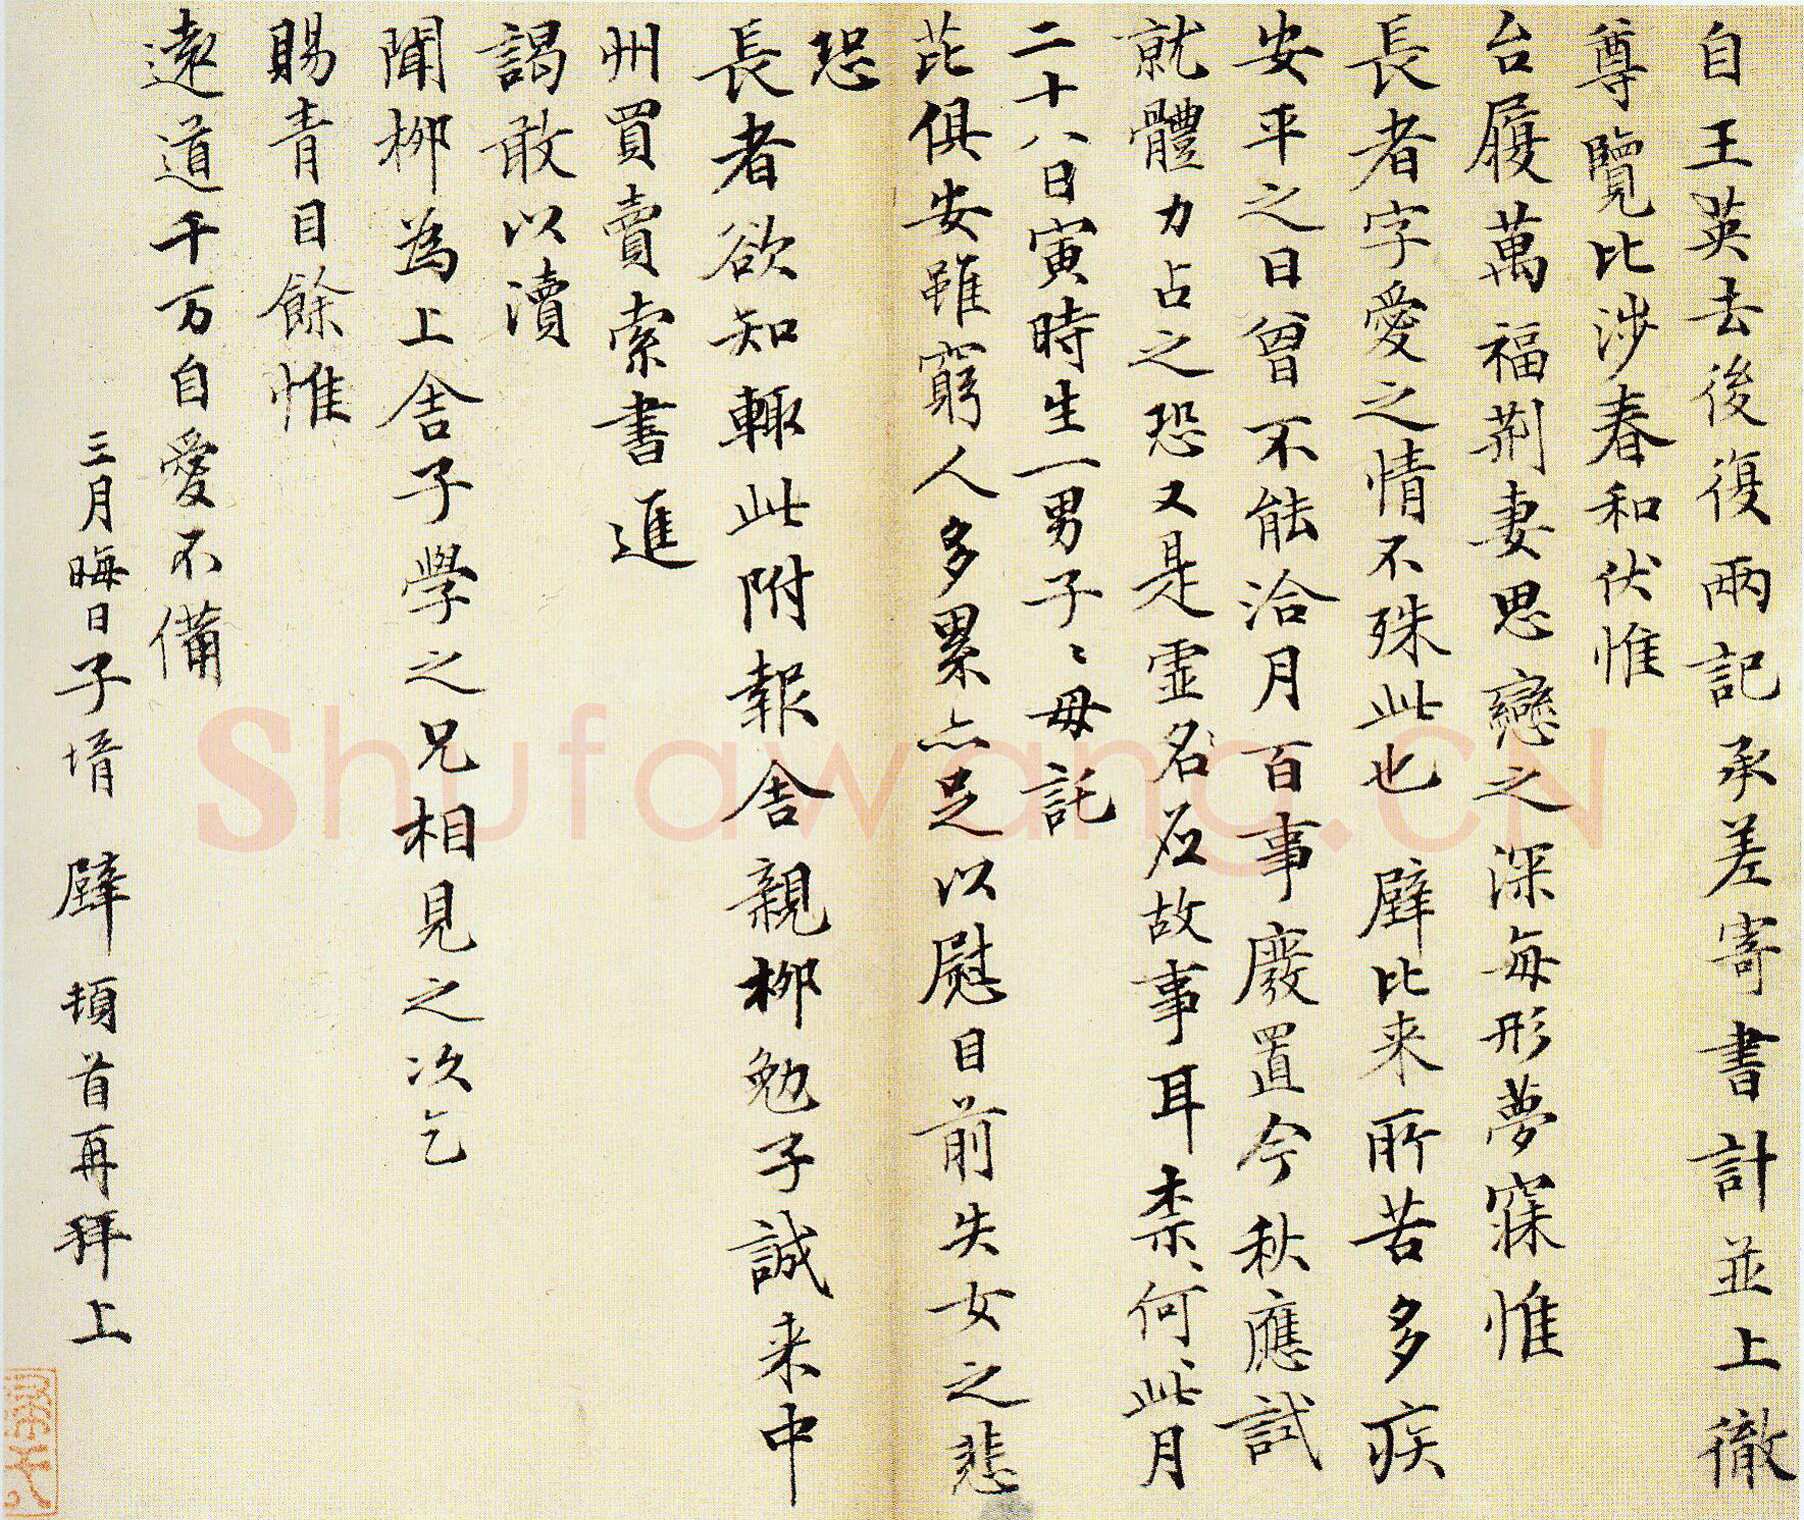 自王英去後復兩記承差寄書計並上徹
尊覽比涉春和伏惟
台履萬福荊妻思戀之深每形夢寐惟
長者字愛之情不殊此也 辟比来所苦多疾
安平之日曾不能洽月百事廢置今秋應試
就體力占之恐又是虛名石故事耳柰何柰何此月
二十八日寅時生一男子〻母託
芘俱安雖窮人多累亦足以慰目前失女之悲
恐
長者欲知輙此附報舍親柳勉子誠来中
州買賣索書進
謁敢以瀆
聞柳為上舍子學之兄相見之次乞
賜青目餘惟
遠道千万自愛不備
三月晦日子壻 辟 頓首再拜上
Shufawang.CN